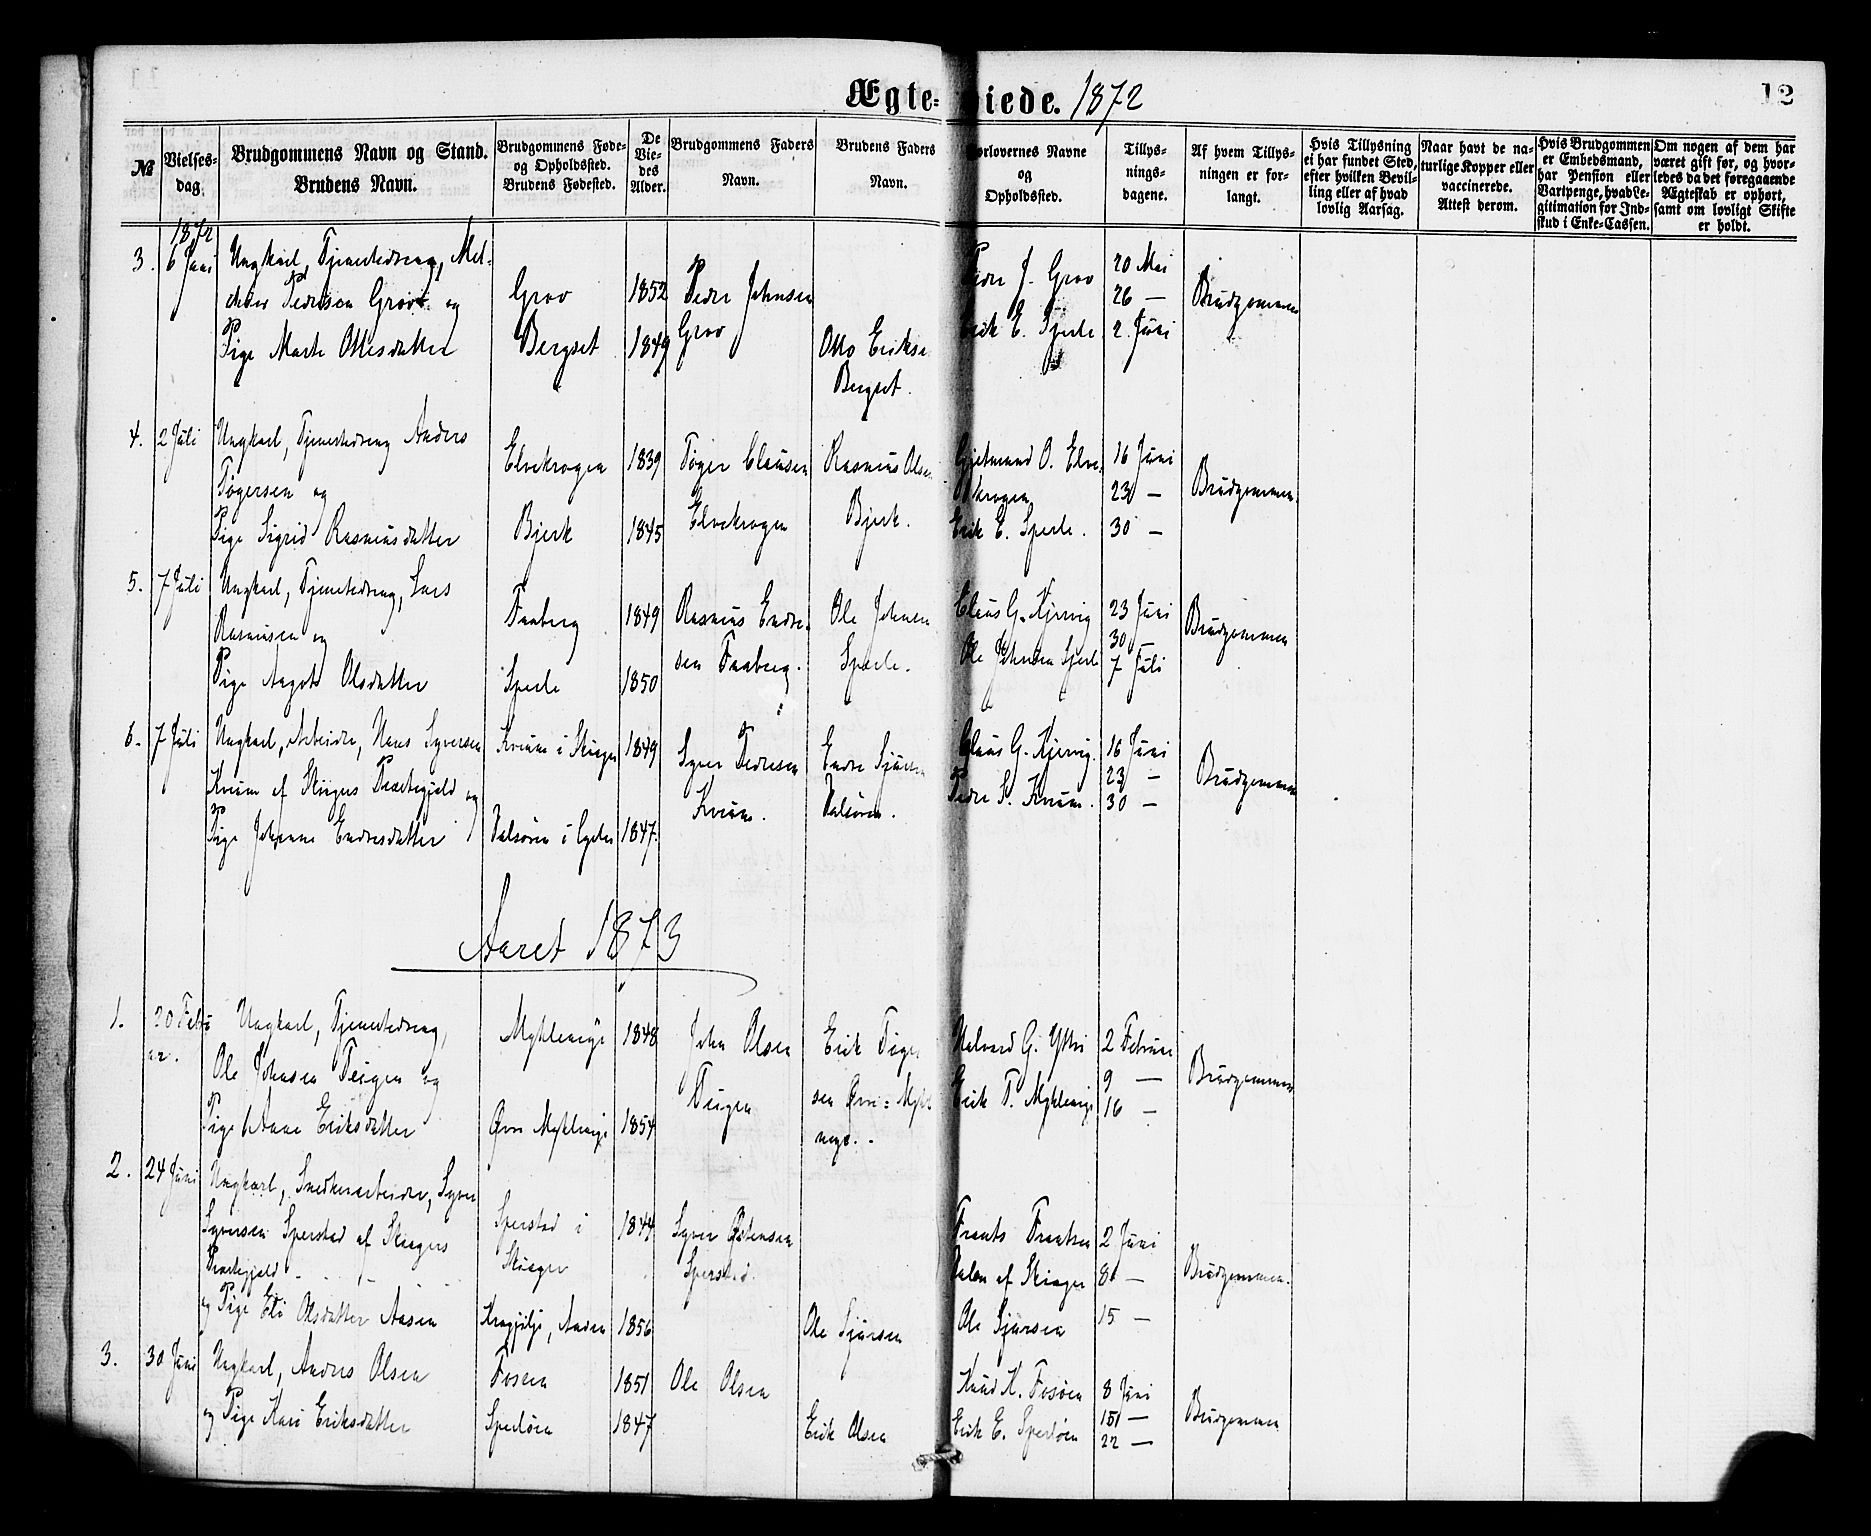 Ægte=viede. 1872
12
№
Vielses-
dag.
Brudgommens Navn og Stand.
Brudens Navn.
Brudgommens Føde-
og Opholdssted.
Brudens Fødested.
De
Vie-
des
Alder.
Brudgommens Faders
Navn.
Brudens Faders
Navn.
Forlovernes Navne
og
Opholdssted.
Tillys-
nings-
dagene.
Af hvem Tillys-
ningen er for-
langt.
Hvis Tillysning
ei har fundet Sted,
efter hvilken Bevil-
ling eller af hvad
lovlig Aarsag.
Naar havt de na-
turlige Kopper eller
vaccinerede.
Attest derom.
Hvis Brudgommen
er Embedsmand,
har Pension eller
Vartpenge, hvad Le-
gitimation for Ind-
skud i Enke-Cassen.
Om nogen af dem har
været gift før, og hvor-
ledes da det foregaaende
Ægteskab er ophørt,
samt om lovligt Skifte
er holdt.
1872
3. 6 Juni
Ungkarl, Tjenestedreng, Mel-
chior Pedersen Grov og
Pige Marte Ottesdatter
Grov
Bergset
1852
1849
Peder Johnsen
Grov
Otto Eriksen
Bergset.
Peder J. Grov
Erik E. Sperle
20 Mai
26 —
2. Juni
Brudgommen
4. 2 Juli
Ungkarl, Tjenestedreng Anders
Tøgersen og
Pige Sigrid Rasmusdatter
Elvekrogen
Bjerk
1839
1845
Tøger Clausen
Elvekrogen
Rasmus Olsen
Bjerk.
Gjetmund O. Elve-
krogen
Erik E. Sperle.
16 Juni
23 —
30 —
Brudgommen
5. 7 Juli
Ungkarl, Tjenestedreng, Lars
Rasmusen og
Pige Aagote Olsdatter
Faaberg
Sperle
1849
1850
Rasmus Endre-
sen Faaberg.
Ole Johnsen
Sperle.
Claus G. Kjervig
Ole Johnsen Sperle
23 Juni
30 —
7 Juli
Brudgommen
6. 7 Juli
Ungkarl, Arbeider, Hans Syversen
Kvium af Skiagers Præstegjeld og
Pige Johanne Endresdatter
Kvium i Skiager
Dalsøren i Lyster
1849
1847.
Syver Pedersen
Kvium.
Endre Sjursen
Dalsøren.
Claus G. Kjervig.
Peder S. Kvium.
16 Juni
23 —
30 —
Brudgommen
Aaret 1873
1. 20 Febru
ar.
Ungkarl, Tjenestedreng,
Ole Johnsen Teigen og
Pige Anne Eriksdatter
Myklemyr
Øvre Myklemyr
1848
1854
John Olsen
Teigen
Erik Tøger
sen Øvre=Mykle
myr.
Halvard G. Yttri
Erik T. Myklemyr
2 Februar
9 —
16 —
Brudgommen
2. 24 Juni
Ungkarl, Snedkerarbeider, Syver
Syversen Sperstad af Skiagers
Præstegjeld
og Pige Eli Olsdatter Aasen
Sperstad i
Skiager
Aasen
1844
1856
Syver Østensen
Sperstad.
Ole Sjursen
Frants Frantsen
Dalen af Skiager
Ole Sjursen
2 Juni
8 —
15 —
Brudgommen.
3. 30 Juni
Ungkarl, Anders Olsen
og Pige Kari Eriksdatter
Fosøen
Sperløen
1851
1847
Ole Olsen
Erik Olsen
Knud K. Fosøen
Erik E. Sperløen
8 Juni
15 —
22 —
Brudgommen